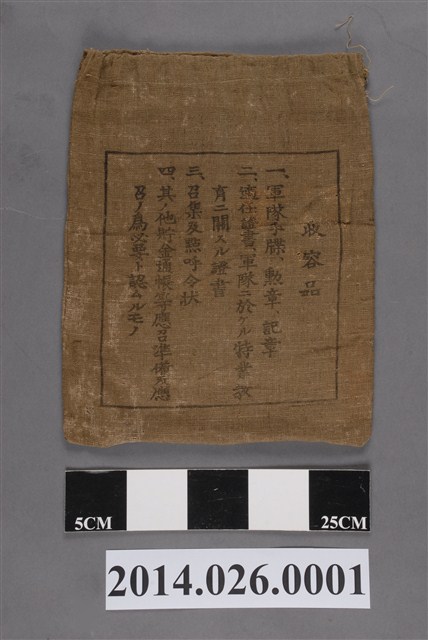 收容品
一、軍隊手牒、勲章、記章
二、適任證書、軍隊ニ於ケル特業教
育ニ關スル證書
三、召集及點呼令状
四、其ノ他貯金通帳等應召準備及應
召ノ為必要ト認ムルモノ
5CM
25CM
2014.026.0001